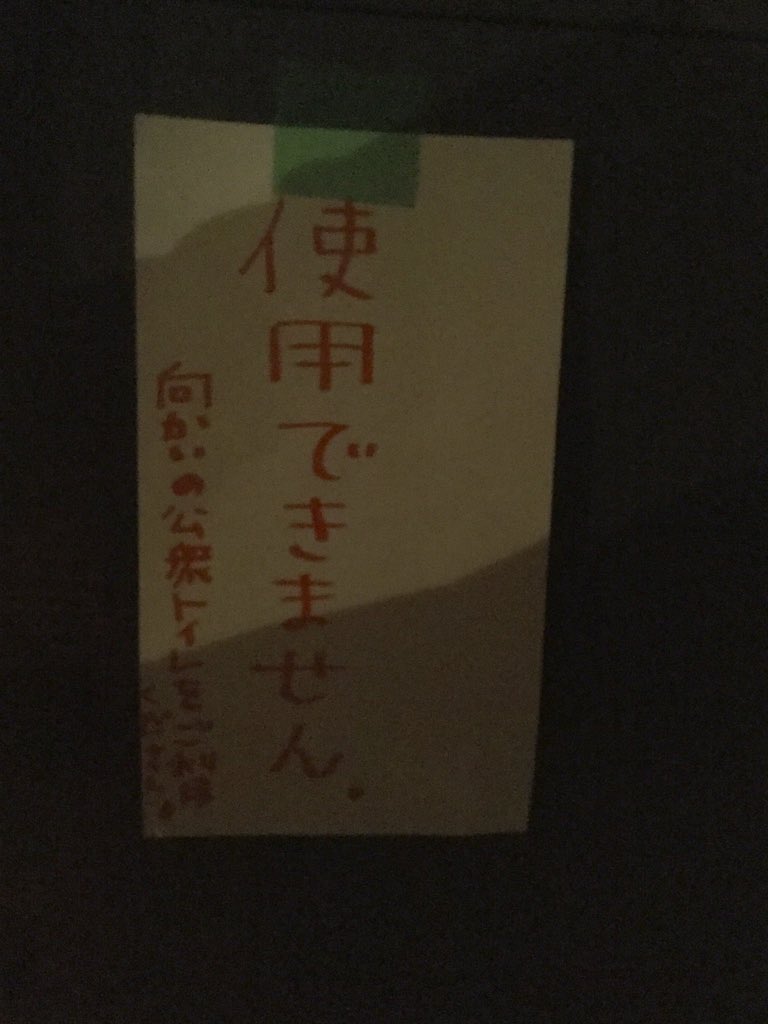 使用できません.
向かいの公衆トイレをご利用
ください.